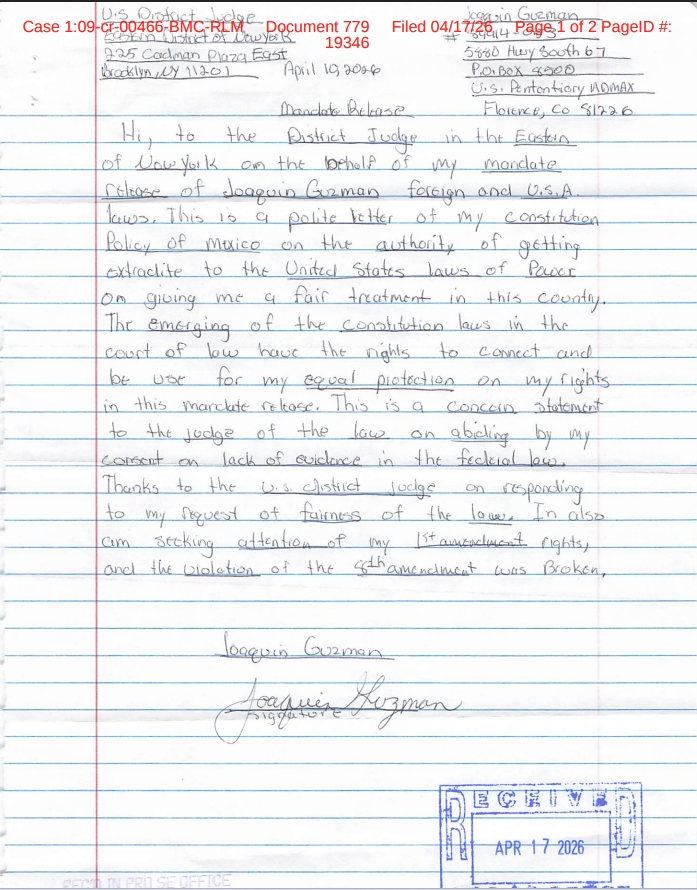 U.S. District Judge
Eastern District of New York
225 Cadman Plaza East
Brooklyn, NY 11201
April 10, 2026
Joaquin Guzman
#
5880 Hwy South 67
P.O. Box 8500
U.S. Pententiary ADMAX
Florence, Co 81226
Case 1:09-cr-00466-BMC-RLM Document 779 Filed 04/17/26 Page 1 of 2 PageID #:
19346
Mandate Release
Hi, to the District Judge in the Eastern
of New York on the behalf of my mandate
release of Joaquin Guzman foreign and U.S.A.
laws. This is a polite letter of my constitution
Policy of Mexico on the authority of getting
extradite to the United States laws of Power
on giving me a fair treatment in this country.
The emerging of the constitution laws in the
court of law have the rights to connect and
be use for my equal protection on my rights
in this mandate release. This is a concern statement
to the judge of the law on abiding by my
consent on lack of evidence in the federal law.
Thanks to the U.S. district judge on responding
to my request of fairness of the law. In also
am seeking attention of my 1st amendment rights,
and the violation of the 8th amendment was Broken.
Joaquin Guzman
Joaquin Guzman
signature
RECEIVED
APR 17 2026
REC'D IN PRO SE OFFICE